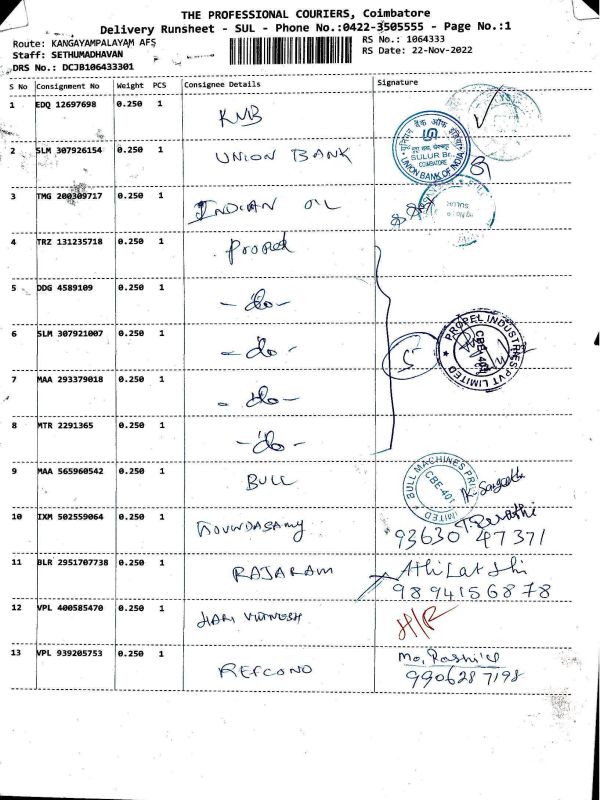 THE PROFESSIONAL COURIERS, Coimbatore
Delivery Runsheet - SUL - Phone No.:0422-3505555 - Page No.:1
Route: KANGAYAMPALAYAM AFS
RS No.: 1064333
Staff: SETHUMADHAVAN
RS Date: 22-Nov-2022
DRS No.: DCJB106433301
S No Consignment No Weight PCS Consignee Details Signature
1 EDQ 12697698 0.250 1 KNB
2 SLM 307926154 0.250 1 UNION BANK
यूनियन बैंक ऑफ इंडिया
SULUR Br.
COIMBATORE
UNION BANK OF INDIA
3 TMG 200309717 0.250 1 INDIAN OIL
SULUR
4 TRZ 131235718 0.250 1 Propel
5 DDG 4589109 0.250 1 - do -
6 SLM 307921007 0.250 1 - do -
5
PROPEL INDUSTRIES PVT LIMITED
CBE-401
7 MAA 293379018 0.250 1 - do -
8 MTR 2291365 0.250 1 - do -
9 MAA 565960542 0.250 1 BULL
BULL MACHINES PRI LIMITED
CBE-401
10 IXM 502559064 0.250 1 GOUWDASAMY
93630 47371
11 BLR 2951707738 0.250 1 RAJARAM
9894156878
12 VPL 400585470 0.250 1 HARI VIGNESH H/R
13 VPL 939205753 0.250 1 REFCOND
9906287198